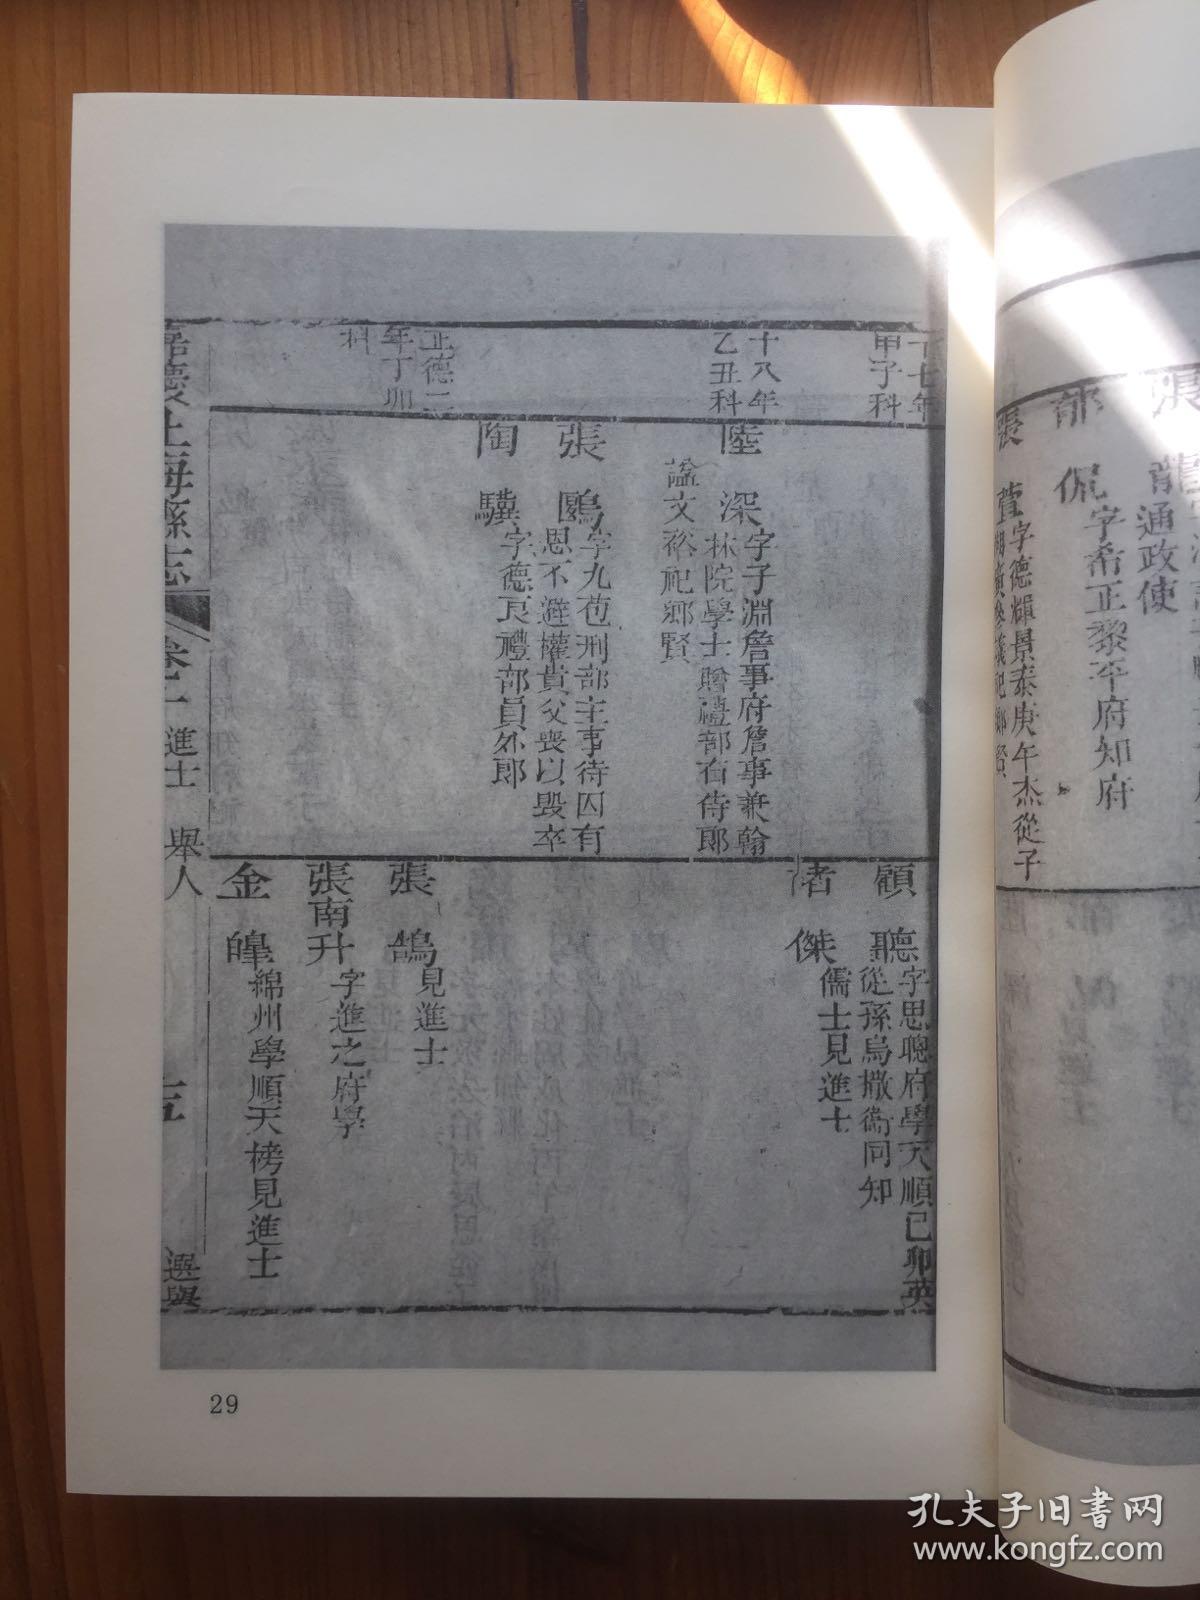 十七年
甲子科
十八年
乙丑科
正德二
年丁卯
科
陸深
字子淵詹事府詹事兼翰
林院學士贈禮部右侍郎
謚文裕祀鄉賢
張鷗
字九苞刑部主事待囚有
恩不避權貴父喪以毀卒
陶驥
字德良禮部員外郎
顧聽
字思聰府學天順己卯英
從孫烏撒衛同知
傑
儒士見進士
張鵠
見進士
張南升
字進之府學
金皥
綿州學順天榜見進士
嘉慶上海縣志
進士 舉人
選舉
張
龍
通政使
郜侃
字希正黎平府知府
張萱
字德輝景泰庚午杰從子
29
孔夫子旧书网
www.kongfz.com